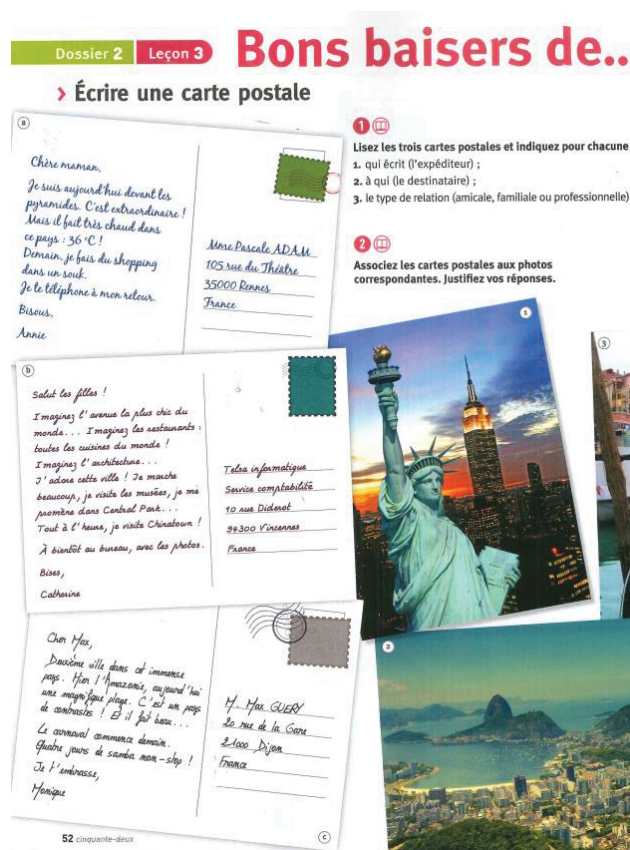 Dossier 2 Leçon 3 Bons baisers de...
> Écrire une carte postale
a
Chère maman,
Je suis aujourd'hui devant les
pyramides. C'est extraordinaire !
Mais il fait très chaud dans
ce pays : 36 °C !
Demain, je fais du shopping
dans un souk.
Je te téléphone à mon retour.
Bisous,
Annie
Mme Pascale ADAM
105 rue du Théâtre
35000 Rennes
France
b
Salut les filles !
Imaginez l'avenue la plus chic du
monde... Imaginez les restaurants :
toutes les cuisines du monde !
Imaginez l'architecture...
J'adore cette ville ! Je marche
beaucoup, je visite les musées, je me
promène dans Central Park...
Tout à l'heure, je visite Chinatown !
À bientôt au bureau, avec les photos.
Bises,
Catherine
Telsa informatique
Service comptabilité
10 rue Diderot
94300 Vincennes
France
Cher Max,
Deuxième ville dans cet immense
pays. Hier l'Amazonie, aujourd'hui
une magnifique plage. C'est un pays
de contrastes ! Et il fait beau...
Le carnaval commence demain.
Quatre jours de samba non-stop !
Je t'embrasse,
Monique
M. Max GUERY
20 rue de la Gare
21000 Dijon
France
c
1
Lisez les trois cartes postales et indiquez pour chacune
1. qui écrit (l'expéditeur) ;
2. à qui (le destinataire) ;
3. le type de relation (amicale, familiale ou professionnelle)
2
Associez les cartes postales aux photos
correspondantes. Justifiez vos réponses.
1
3
2
52 cinquante-deux